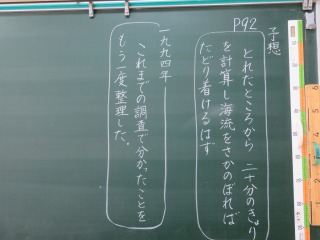 予想
P92
とれたところから 二十分のきょり
を計算し海流をさかのぼれば
たどり着けるはず
一九九四年
これまでの調査で分かったことを
もう一度整理した。